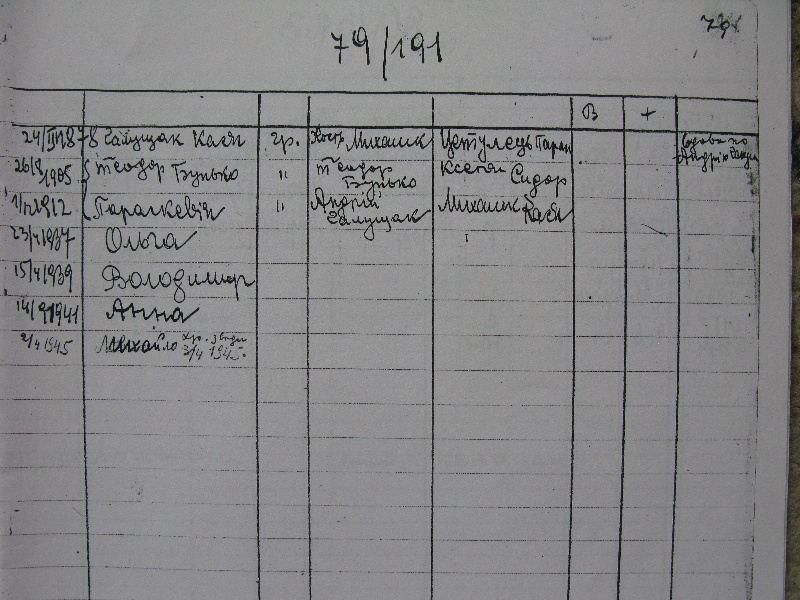 79/191
79
В +
24/III 1878 Галущак Кася гр. Кость Михашк Цетулець Параск Вдова по
Андрію
26/8 1905 Теодор Бунько " Теодор Бунько Ксеня Сидор
1912 Параскевія " Андрій Галущак Михашк Кася
23/4 1937 Ольга
15/4 1939 Володимир
14/9 1941 Анна
2/4 1945 Михайло хр. з води
3/4 1945.